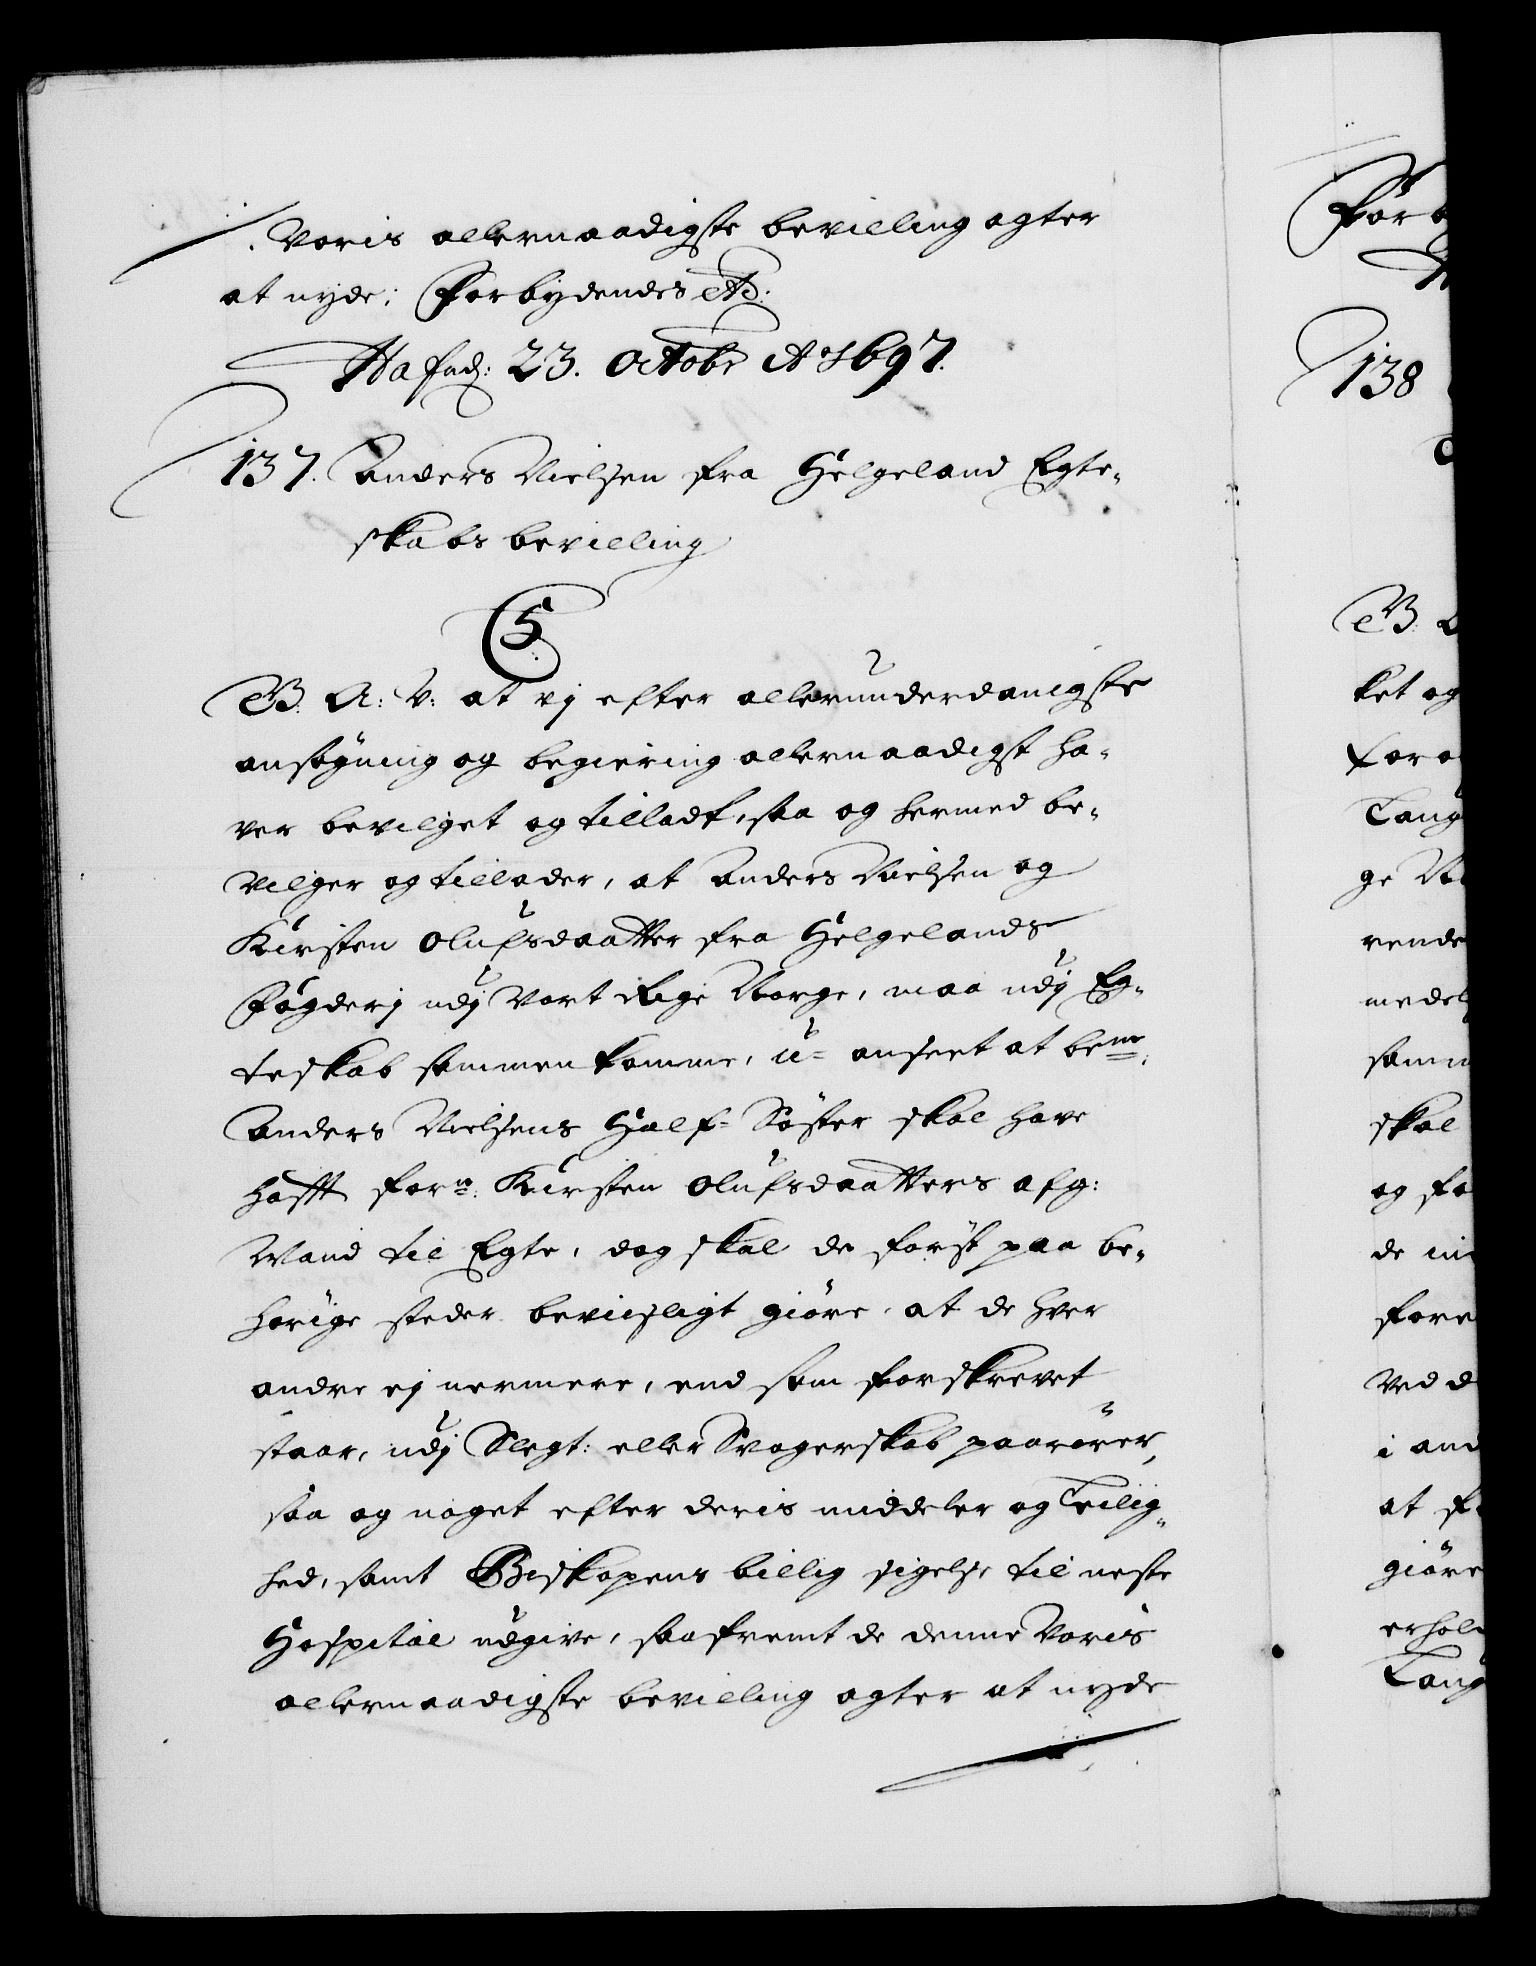 Voris allernaadigste bevilling agter
at nyde; Forbydendes etc:
Hafnd: 23. Octobr Ao 1697.
137. Anders Nielsen fra Helgeland Egte-
skabs bevilling
C5
G. A: V: at vj efter allerunderdanigste
ansøgning og begiering allernaadigst ha-
ver bevilget og tilladt, saa og hermed be-
vilger og tillader, at Anders Nielsen og
Kirsten Olufsdaatter fra Helgelands
Fogderj udj Vort Rige Norge, maa udj Eg-
teskab sammen komme, u- anseet at bemte
Anders Nielsens Half- Søster skal have
hafft forn: Kirsten Olufsdaatters afg:
Mand til Egte, dog skal de først paa be-
hørige steder bevisligt giøre, at de hver
andre ej nermere, end som forskrevet
staar, udj Slegt: eller Svagerskab paarører,
saa og noget efter deris middeler og Leilig-
hed, samt Biskopens billig sigelse til neste
Hospital udgive, saafremt de denne Voris
allernaadigste bevilling agter at nyde
For
138
G.
ket og
for
Lang
ge No
rende
medel
samm
skal
og fo
de
fore
ved d
i and
at f
giøre
erhol
Lang